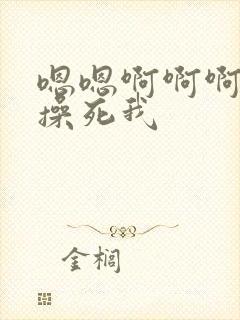 嗯嗯啊啊啊
操死我
金榈